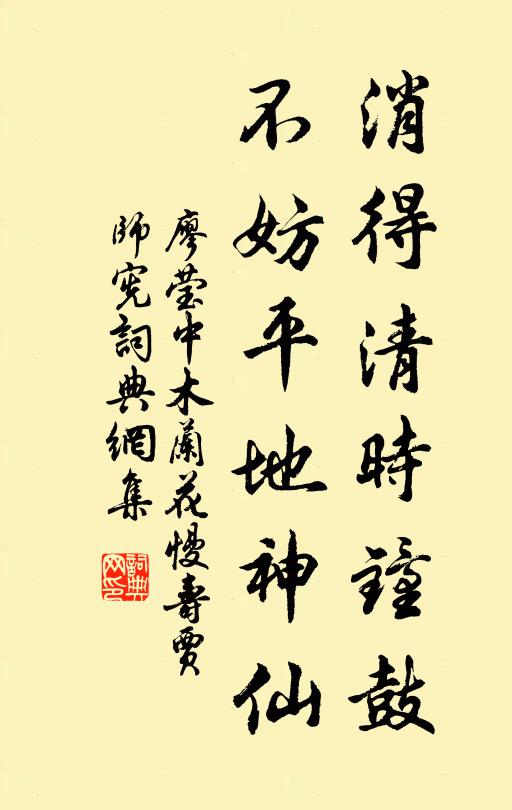 消得清時鐘鼓
不妨平地神仙
廖瑩中木蘭花慢壽賈
師宪詞典網集
詞典网印